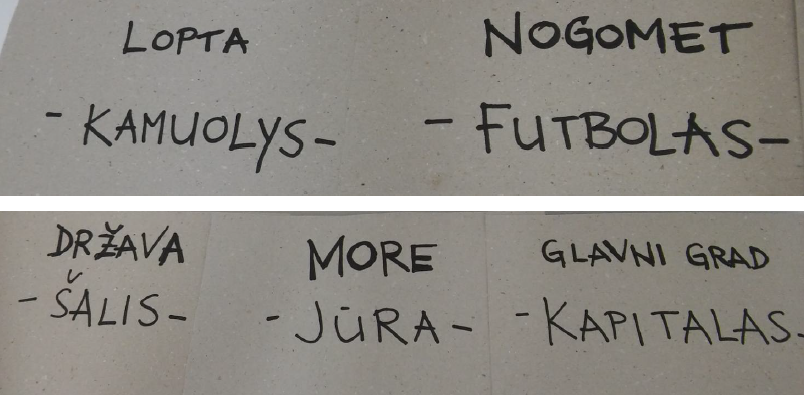 LOPTA
- KAMUOLYS-
NOGOMET
- FUTBOLAS-
DRŽAVA
- ŠALIS-
MORE
- JŪRA-
GLAVNI GRAD
- KAPITALAS-